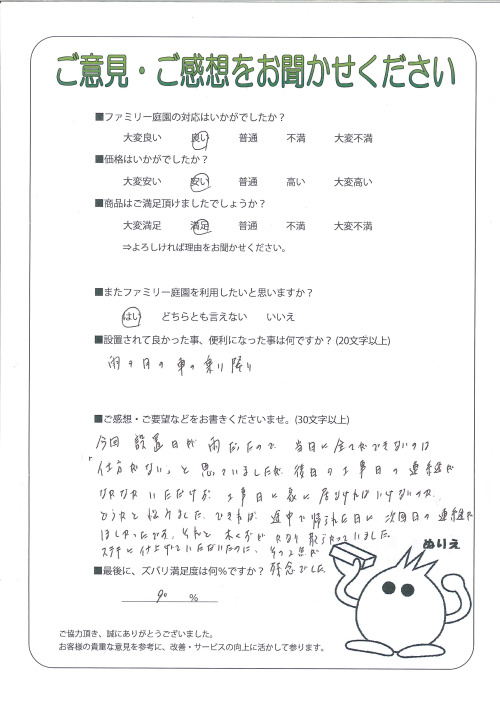 ご意見・ご感想をお聞かせください
■ファミリー庭園の対応はいかがでしたか？
大変良い 良い 普通 不満 大変不満
■価格はいかがでしたか？
大変安い 安い 普通 高い 大変高い
■商品はご満足頂けましたでしょうか？
大変満足 満足 普通 不満 大変不満
⇒よろしければ理由をお聞かせください。
■またファミリー庭園を利用したいと思いますか？
はい どちらとも言えない いいえ
■設置されて良かった事、便利になった事は何ですか？(20文字以上)
雨の日の車の乗り降り
■ご感想・ご要望などをお書きくださいませ。(30文字以上)
今回 設置日が雨だったので、当日に全てができないのは
「仕方がない」と思っていましたが、後日の工事日の連絡が
なかなかいただけず、工事日に家に居なければいけないのか、
どうかと悩みました。できれば、途中で帰られた日に次回日の連絡が
ほしかったです。それと
ステキに仕上げていただいたのに、その2点が
残念でした。
■最後に、ズバリ満足度は何％ですか？
90 ％
ぬりえ
ご協力頂き、誠にありがとうございました。
お客様の貴重な意見を参考に、改善・サービスの向上に活かして参ります。